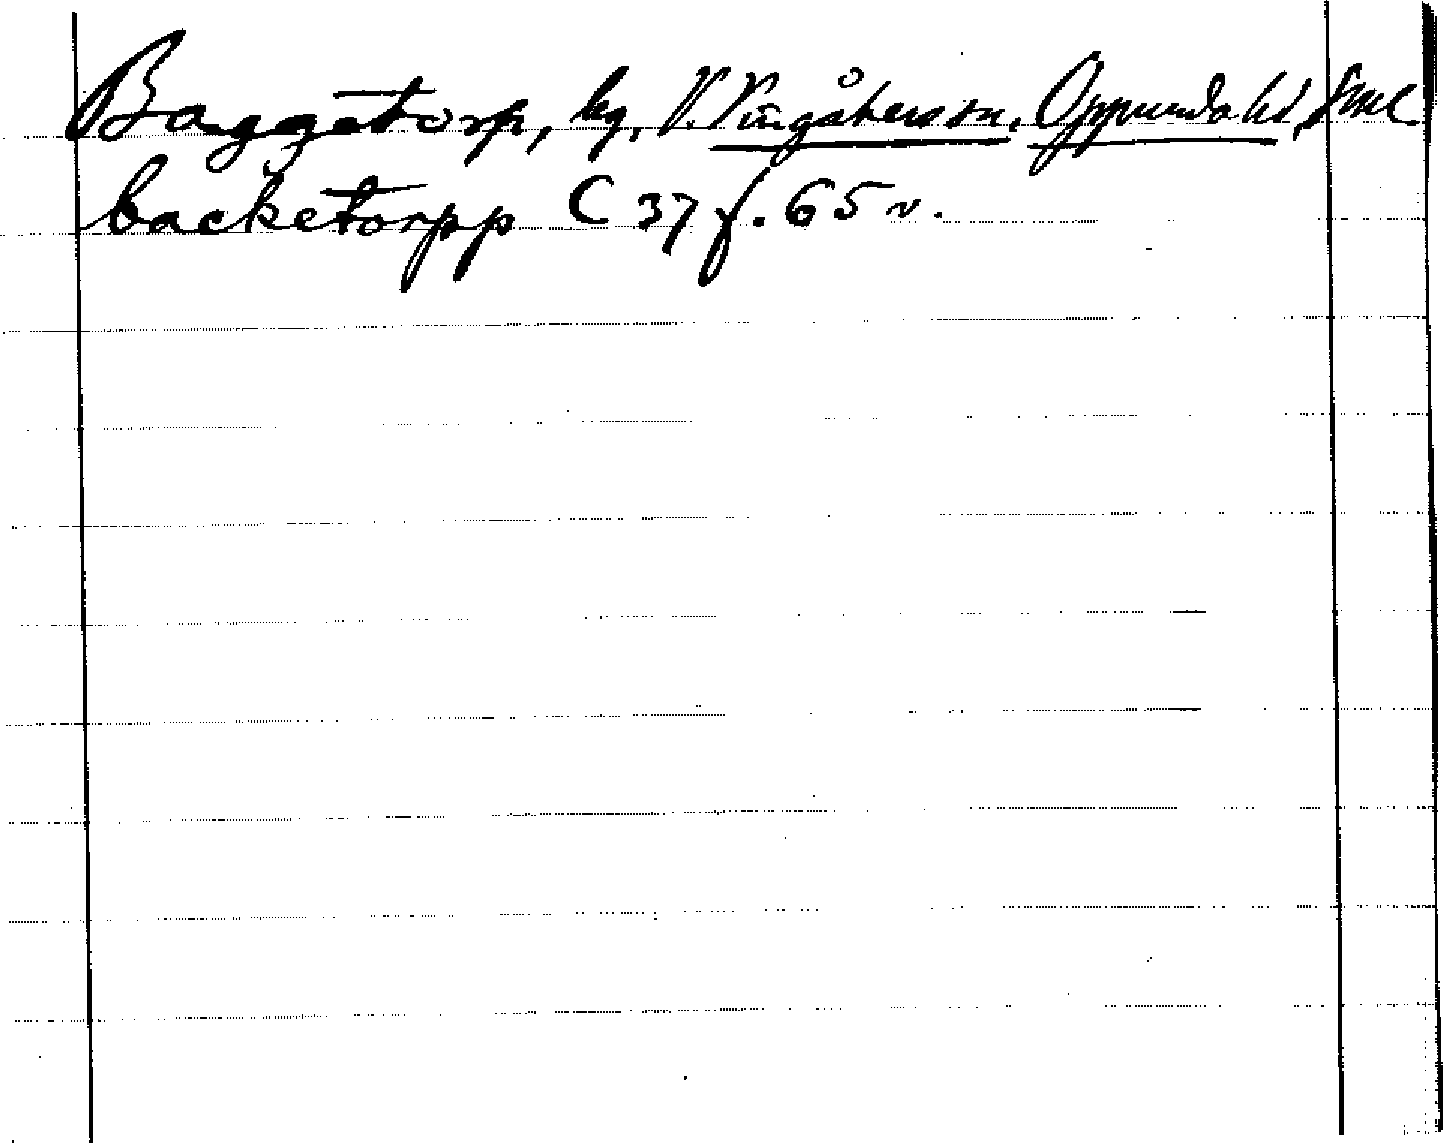 Baggetorp, by, V. Vingåkers sn, Oppunda hd, Sml
backetorpp C 37 f. 65 v.